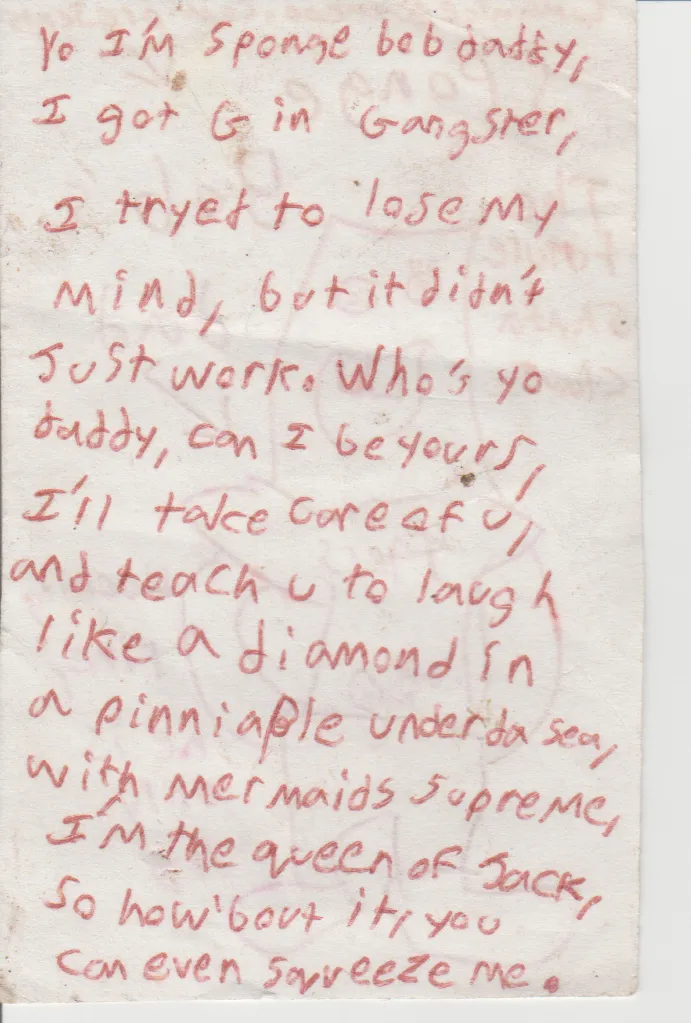 Yo I'm Sponge bob daddy,
I got G in Gangster,
I tryed to lose my
mind, but it didn't
Just work. Who's yo
daddy, can I be yours,
I'll take care of u,
and teach u to laugh
like a diamond in
a pinniaple under da sea,
with mermaids supreme,
I'm the queen of Jack,
so how 'bout it, you
can even squeeze me.